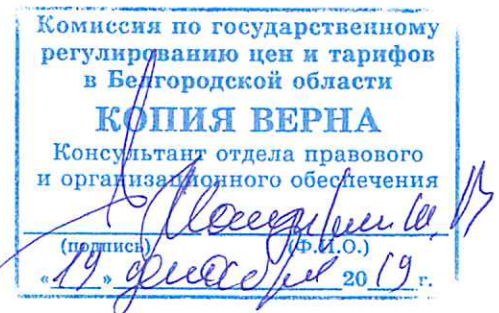 Комиссия по государственному
регулированию цен и тарифов
в Белгородской области
КОПИЯ ВЕРНА
Консультант отдела правового
и организационного обеспечения
(подпись) (Ф.И.О.)
«19» декабря 2019 г.